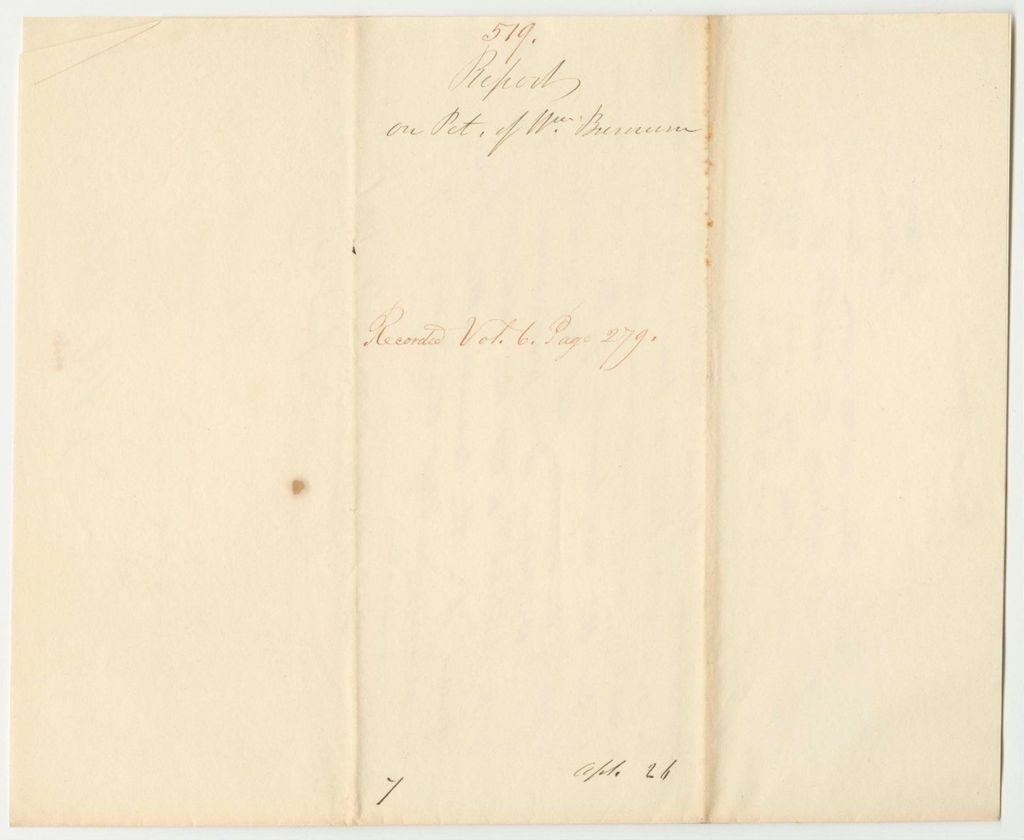 519.
Report
on Pet. of Wm.
Recorded Vol. 6. Page 279.
7
Apl. 26